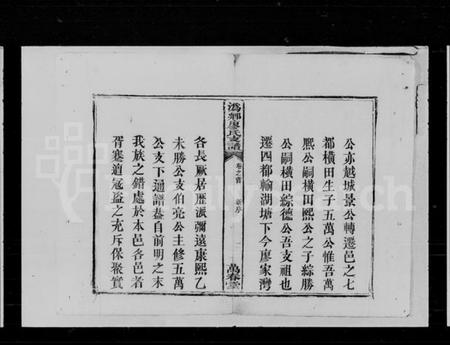 公亦越城景公轉遷邑之七
都橫田生子五萬公惟吾萬
熙公嗣橫田熙公之子綜勝
公嗣橫田綜德公吾支祖也
遷四都榆湖塘下今廖家灣
溈鄉廖氏支譜
卷之首 新序
萬春堂
各長厥居歷派彌遠康熙乙
未勝公支伯亮公主修五萬
公支下通譜葢自前明之末
我族之錯處於本邑各邑者
胥蹇遒寇盜之充斥保聚實